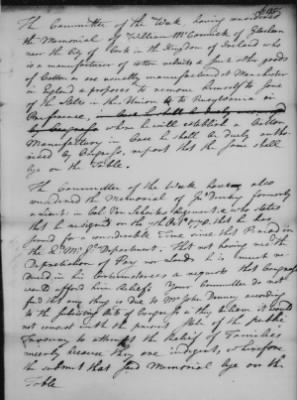 The Committee of the Week, having considered
the Memorial of William McCormick of Glashen
near the City of Cork in the Kingdom of Ireland who
is a manufacturer of cotton velvets & such other goods
of Cotton as are usually manufactured at Manchester
in England & proposes to remove himself to some
of the States in this Union & to Pennsylvania in
Preference,
by Congress, where he will establish a Cotton
Manufactory in Case he shall be duly author
ised by Congress, report that the same shall
lye on the Table.
The Committee of the Week have also
considered the Memorial of Jno Denny formerly
a Lieut in Col. Van Schaicks Regiment, who states
that he resigned on the 1778, that he has
served for a considerable Time since that Period in
the Q. M. Gs Department. That not having made the
Depreciation of Pay nor Lands he is much re
duced in his Circumstances & requests that Congress
would afford him Reliefe. Your Committee do not
find that any thing is due to Mr John Denny according
to the subsisting Acts of Congress & they believe it would
not consist with the present State of the public
Treasury to attempt the Relief of Families
merely because they are indigent, wherefore
they submit that said Memorial lye on the
Table